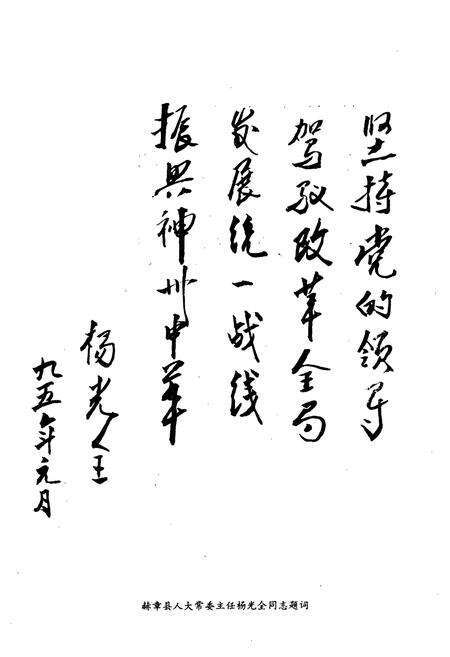 坚持党的领导
驾驭改革全局
发展统一战线
振兴神州中华
杨光全
九五年元月
赫章县人大常委主任杨光全同志题词